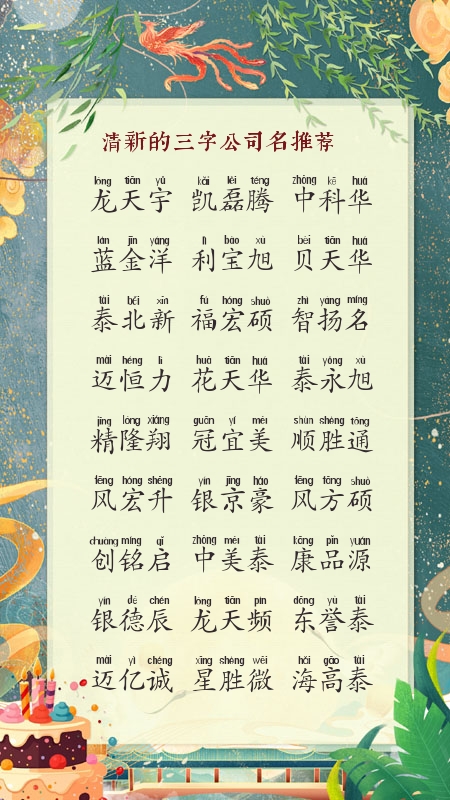 清新的三字公司名推荐
lóng tiān yǔ kǎi lěi téng zhōng kē huá
龙天宇 凯磊腾 中科华
lán jīn yáng lì bǎo xù bèi tiān huá
蓝金洋 利宝旭 贝天华
tài běi xīn fú hóng shuò zhì yáng míng
泰北新 福宏硕 智扬名
mài héng lì huā tiān huá tài yǒng xù
迈恒力 花天华 泰永旭
jīng lóng xiáng guān yí měi shùn shèng tōng
精隆翔 冠宜美 顺胜通
fēng hóng shēng yín jīng háo fēng fāng shuò
风宏升 银京豪 风方硕
chuàng míng qǐ zhōng měi tài kāng pǐn yuán
创铭启 中美泰 康品源
yín dé chén lóng tiān pín dōng yù tài
银德辰 龙天频 东誉泰
mài yì chéng xīng shèng wēi hǎi gāo tài
迈亿诚 星胜微 海高泰